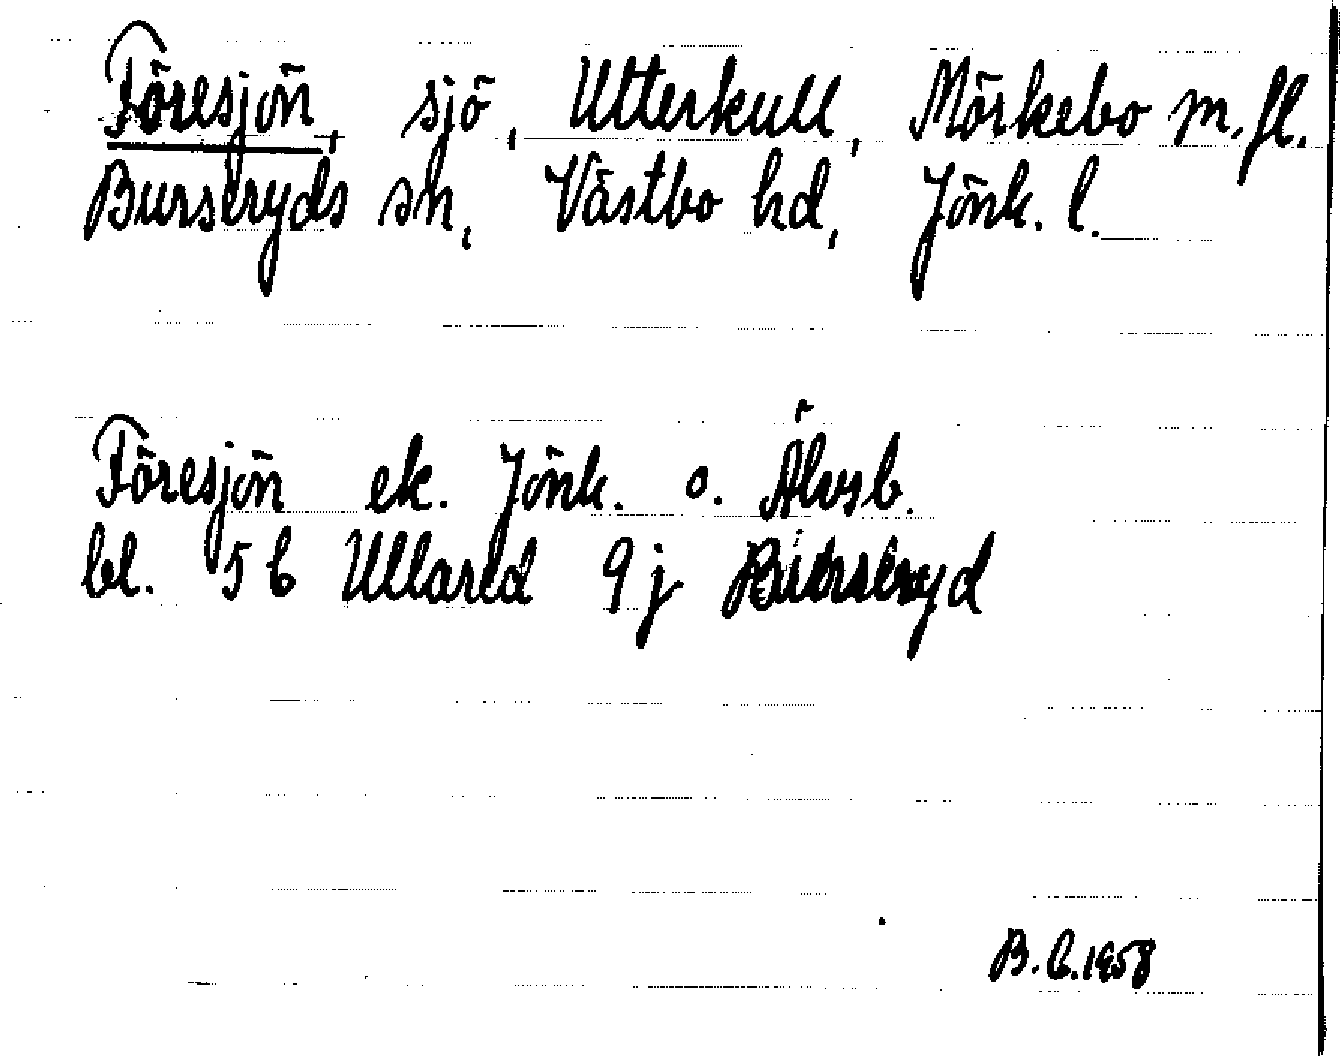 Föresjön, sjö, Utterkull, Mörkebo m. fl.
Burseryds sn, Västbo hd, Jönk. l.
Föresjön ek. Jönk. o. Älvsb.
bl. 5 b Ullared 9 j Burseryd
B. C. 1958